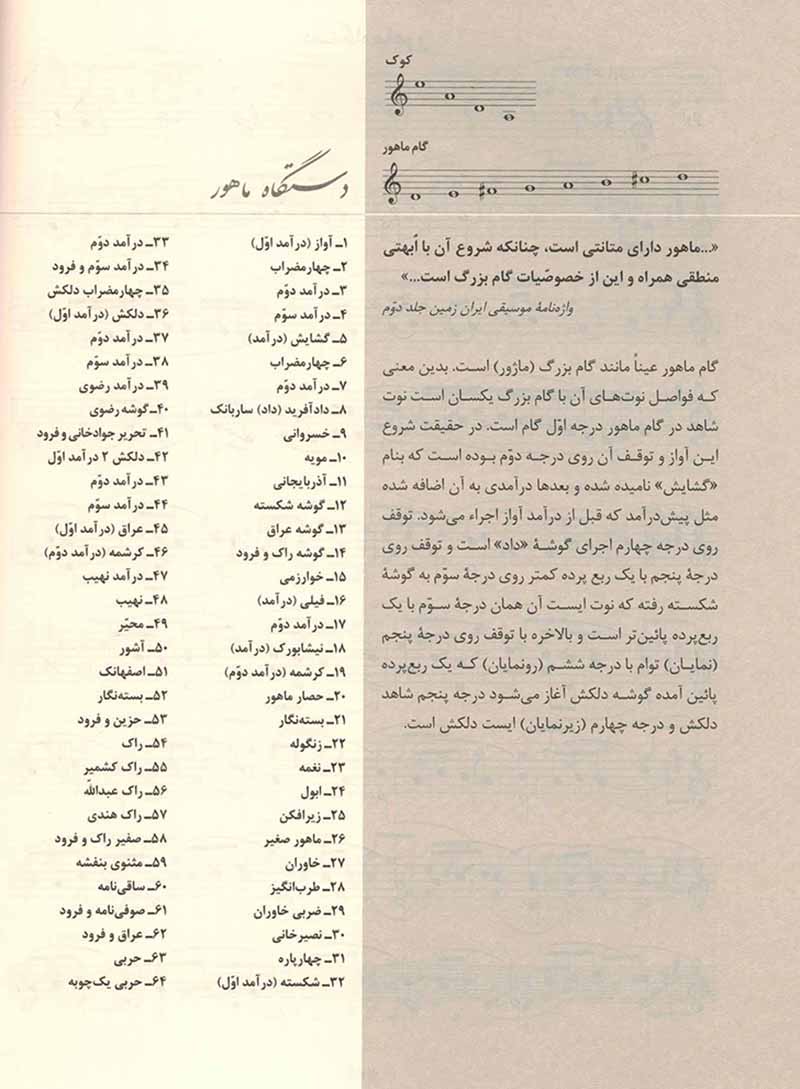 کوک
گام ماهور
دستگاه ماهور
«...ماهور دارای متانتی است، چنانکه شروع آن با اُبهتی
منطقی همراه و این از خصوصیّات گام بزرگ است...»
واژه‌نامهٔ موسیقی ایران زمین جلد دوّم
گام ماهور عیناً مانند گام بزرگ (ماژور) است. بدین معنی
که فواصل نوت‌های آن با گام بزرگ یکسان است نوت
شاهد در گام ماهور درجه اوّل گام است. در حقیقت شروع
این آواز و توقف آن روی درجه دوّم بوده است که بنام
«گشایش» نامیده شده و بعدها درآمدی به آن اضافه شده
مثل پیش‌درآمد که قبل از درآمد آواز اجراء می‌شود. توقف
روی درجه چهارم اجرای گوشهٔ «داد» است و توقف روی
درجهٔ پنجم با یک ربع پرده کمتر روی درجهٔ سوّم به گوشهٔ
شکسته رفته که نوت ایست آن همان درجهٔ سوّم با یک
ربع‌پرده پائین‌تر است و بالاخره با توقف روی درجهٔ پنجم
(نمایان) توام با درجه ششم (رونمایان) که یک ربع‌پرده
پائین آمده گوشه دلکش آغاز می‌شود درجه پنجم شاهد
دلکش و درجه چهارم (زیرنمایان) ایست دلکش است.
۱ـ آواز (درآمد اوّل)
۲ـ چهارمضراب
۳ـ درآمد دوّم
۴ـ درآمد سوّم
۵ـ گشایش (درآمد)
۶ـ چهارمضراب
۷ـ درآمد دوّم
۸ـ دادآفرید (داد) ساربانک
۹ـ خسروانی
۱۰ـ مویه
۱۱ـ آذربایجانی
۱۲ـ گوشه شکسته
۱۳ـ گوشه عراق
۱۴ـ گوشه راک و فرود
۱۵ـ خوارزمی
۱۶ـ فیلی (درآمد)
۱۷ـ درآمد دوّم
۱۸ـ نیشابورک (درآمد)
۱۹ـ کرشمه (درآمد دوّم)
۲۰ـ حصار ماهور
۲۱ـ بسته‌نگار
۲۲ـ زنگوله
۲۳ـ نغمه
۲۴ـ ابول
۲۵ـ زیرافکن
۲۶ـ ماهور صغیر
۲۷ـ خاوران
۲۸ـ طرب‌انگیز
۲۹ـ ضربی خاوران
۳۰ـ نصیرخانی
۳۱ـ چهارپاره
۳۲ـ شکسته (درآمد اوّل)
۳۳ـ درآمد دوّم
۳۴ـ درآمد سوّم و فرود
۳۵ـ چهارمضراب دلکش
۳۶ـ دلکش (درآمد اوّل)
۳۷ـ درآمد دوّم
۳۸ـ درآمد سوّم
۳۹ـ درآمد رضوی
۴۰ـ گوشه رضوی
۴۱ـ تحریر جوادخانی و فرود
۴۲ـ دلکش ۲ درآمد اوّل
۴۳ـ درآمد دوّم
۴۴ـ درآمد سوّم
۴۵ـ عراق (درآمد اوّل)
۴۶ـ کرشمه (درآمد دوّم)
۴۷ـ درآمد نهیب
۴۸ـ نهیب
۴۹ـ محیّر
۵۰ـ آشور
۵۱ـ اصفهانک
۵۲ـ بسته‌نگار
۵۳ـ حزین و فرود
۵۴ـ راک
۵۵ـ راک کشمیر
۵۶ـ راک عبداللّه
۵۷ـ راک هندی
۵۸ـ صفیر راک و فرود
۵۹ـ مثنوی بنفشه
۶۰ـ ساقی‌نامه
۶۱ـ صوفی‌نامه و فرود
۶۲ـ عراق و فرود
۶۳ـ حربی
۶۴ـ حربی یک‌چوبه